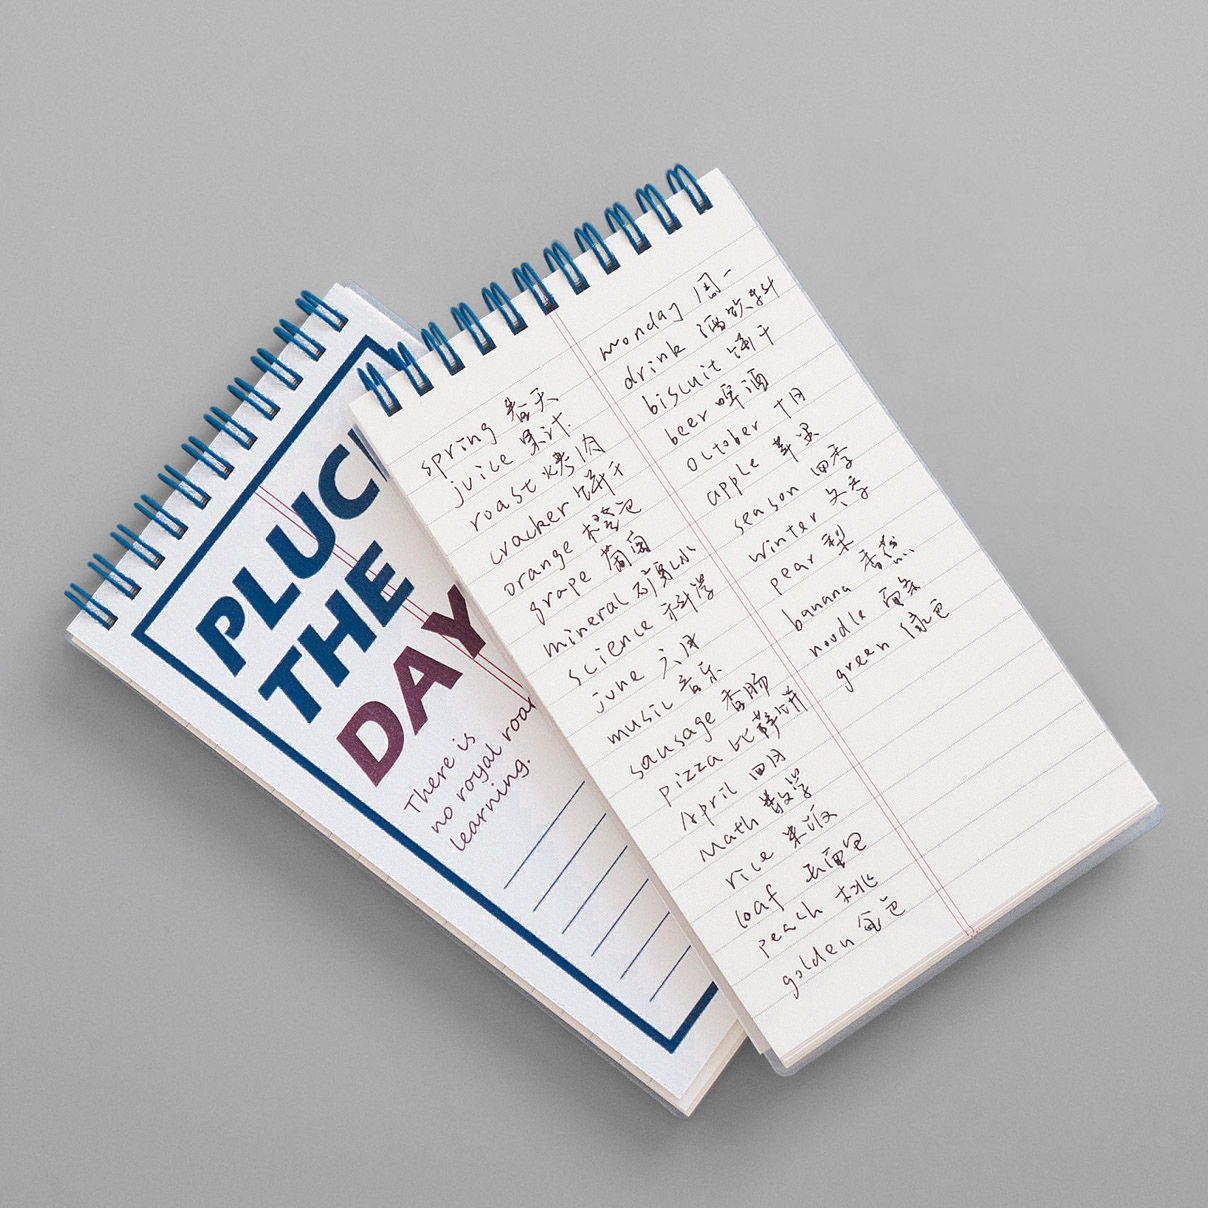 PLUCK
THE
DAY
There is
no royal road
learning.
spring 春天
juice 果汁
roast 烤肉
cracker 饼干
orange 橙色
grape 葡萄
mineral 矿泉水
science 科学
june 六月
music 音乐
sausage 香肠
pizza 比萨饼
April 四月
Math 数学
rice 米饭
loaf 长面包
peach 桃
golden 金色
monday 周一
drink 酒饮料
biscuit 饼干
beer 啤酒
october 十月
apple 苹果
season 四季
winter 冬季
pear 梨
banana 香蕉
noodle 面条
green 绿色